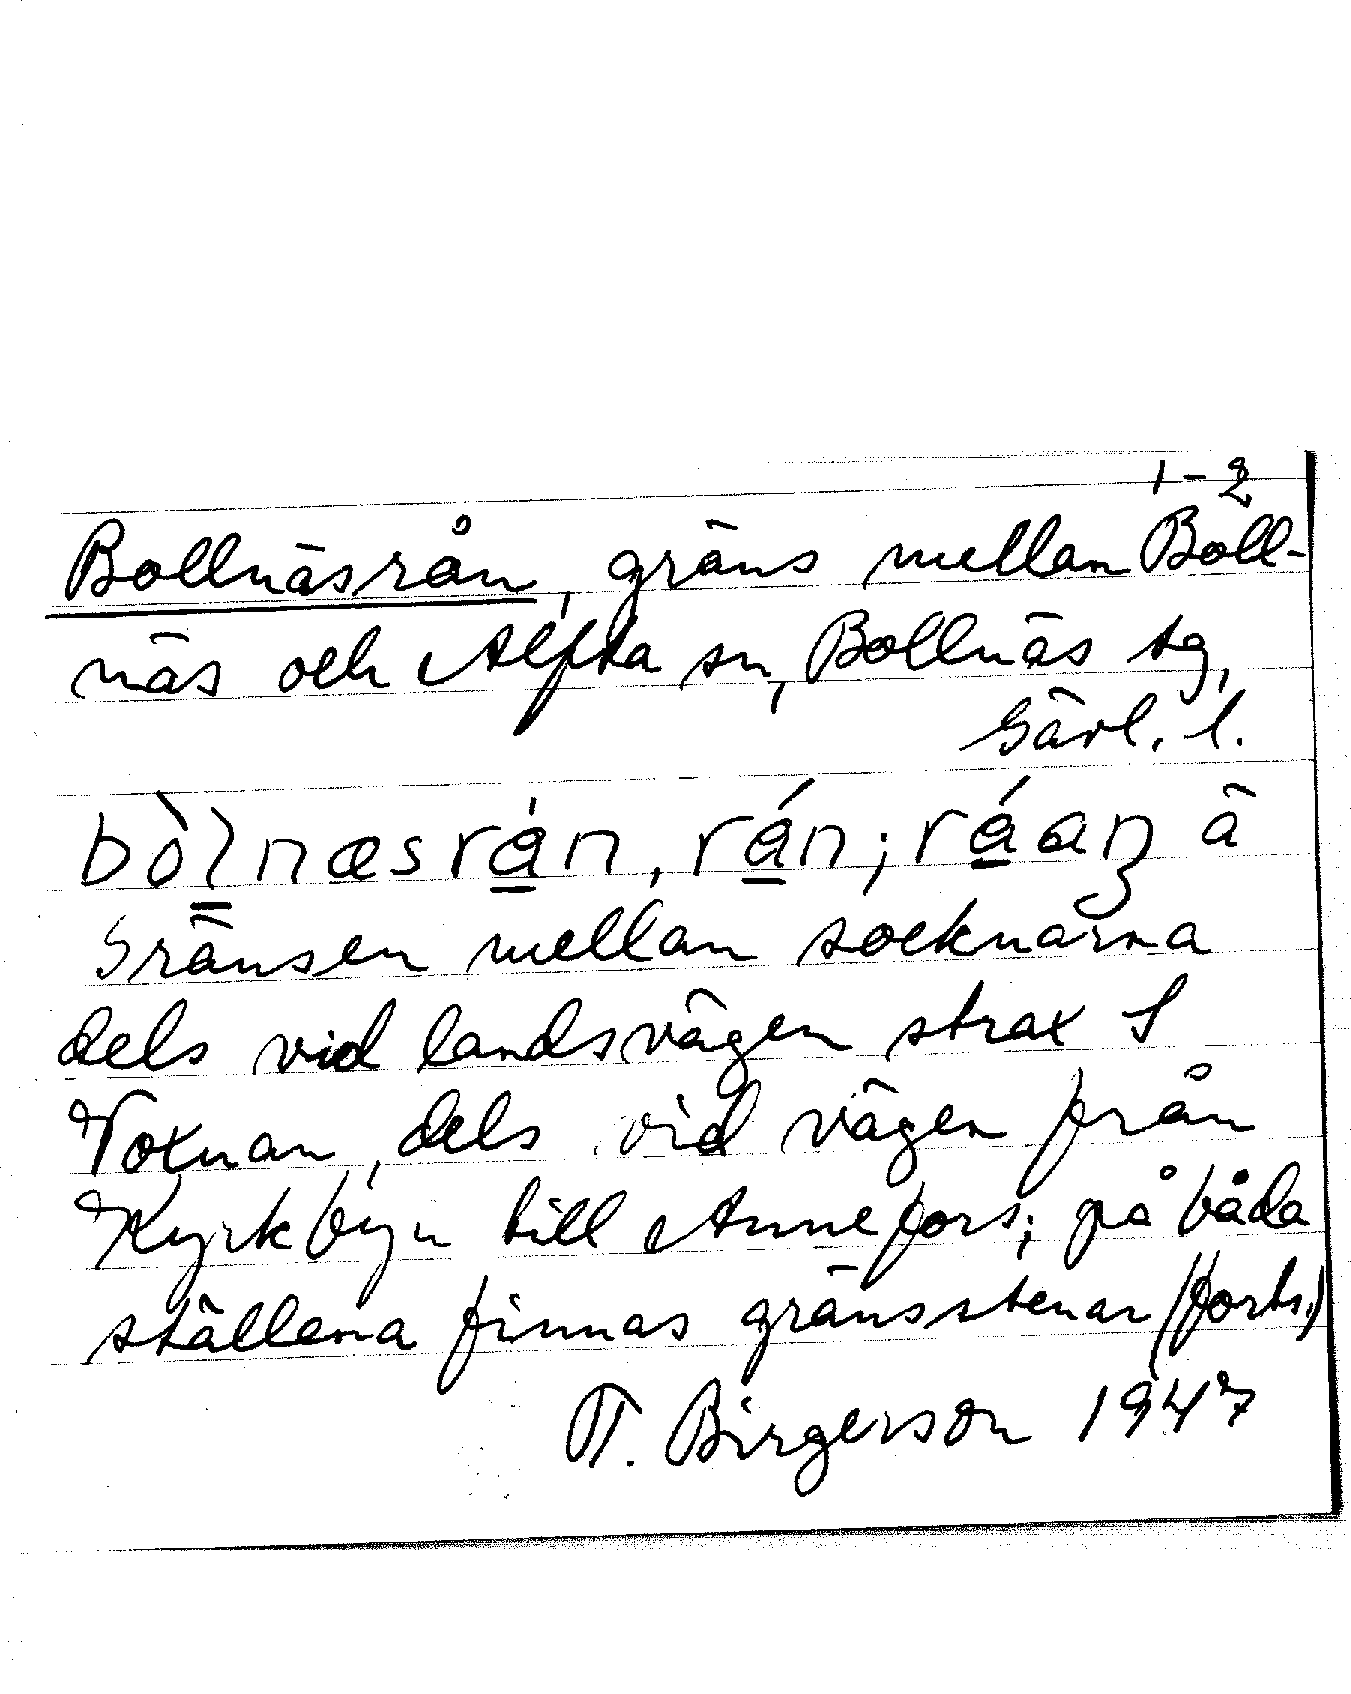 1-2
Bollnäsrån, gräns mellan Boll-
näs och Alfta sn, Bollnäs tg,
Gävl. l.
bòlnæsrån, rån; råaŋ ä
Gränsen mellan socknarna
dels vid landsvägen strax S
Voxnan, dels vid vägen från
Kyrkbyn till Annefors; på båda
ställena finnas gränsstenar (forts.)
T. Birgerson 1947